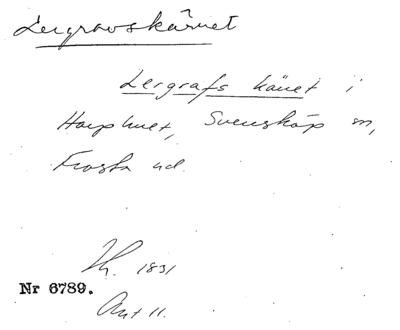 Lergravskärret
Lergrafs käret i
Harphult, Svensköp sn,
Frosta hd.
Th. 1831
Nr 6789.
Ant 11.